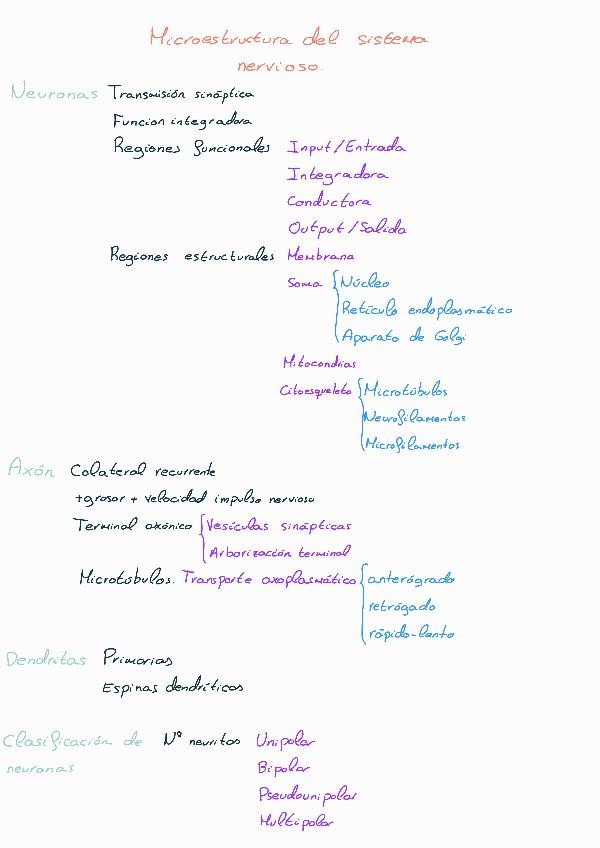 Microestructura del sistema
nervioso.
Neuronas Transmisión sináptica
Funcion integradora
Regiones funcionales Input/Entrada
Integradora
Conductora
Output/Salida
Regiones estructurales Membrana
Soma Núcleo
Retículo endoplasmático
Aparato de Golgi
Mitocondrias
Citoesqueleto Microtúbulos
Neurofilamentos
Microfilamentos
Axón Colateral recurrente
+grosor + velocidad impulso nervioso
Terminal axónico Vesículas sinápticas
Arborización terminal
Microtúbulos. Transporte axoplasmático anterógrado
retrógado
rápido-lento
Dendritas Primarias
Espinas dendríticas
Clasificación de Nº neuritas Unipolar
neuronas Bipolar
Pseudounipolar
Multipolar